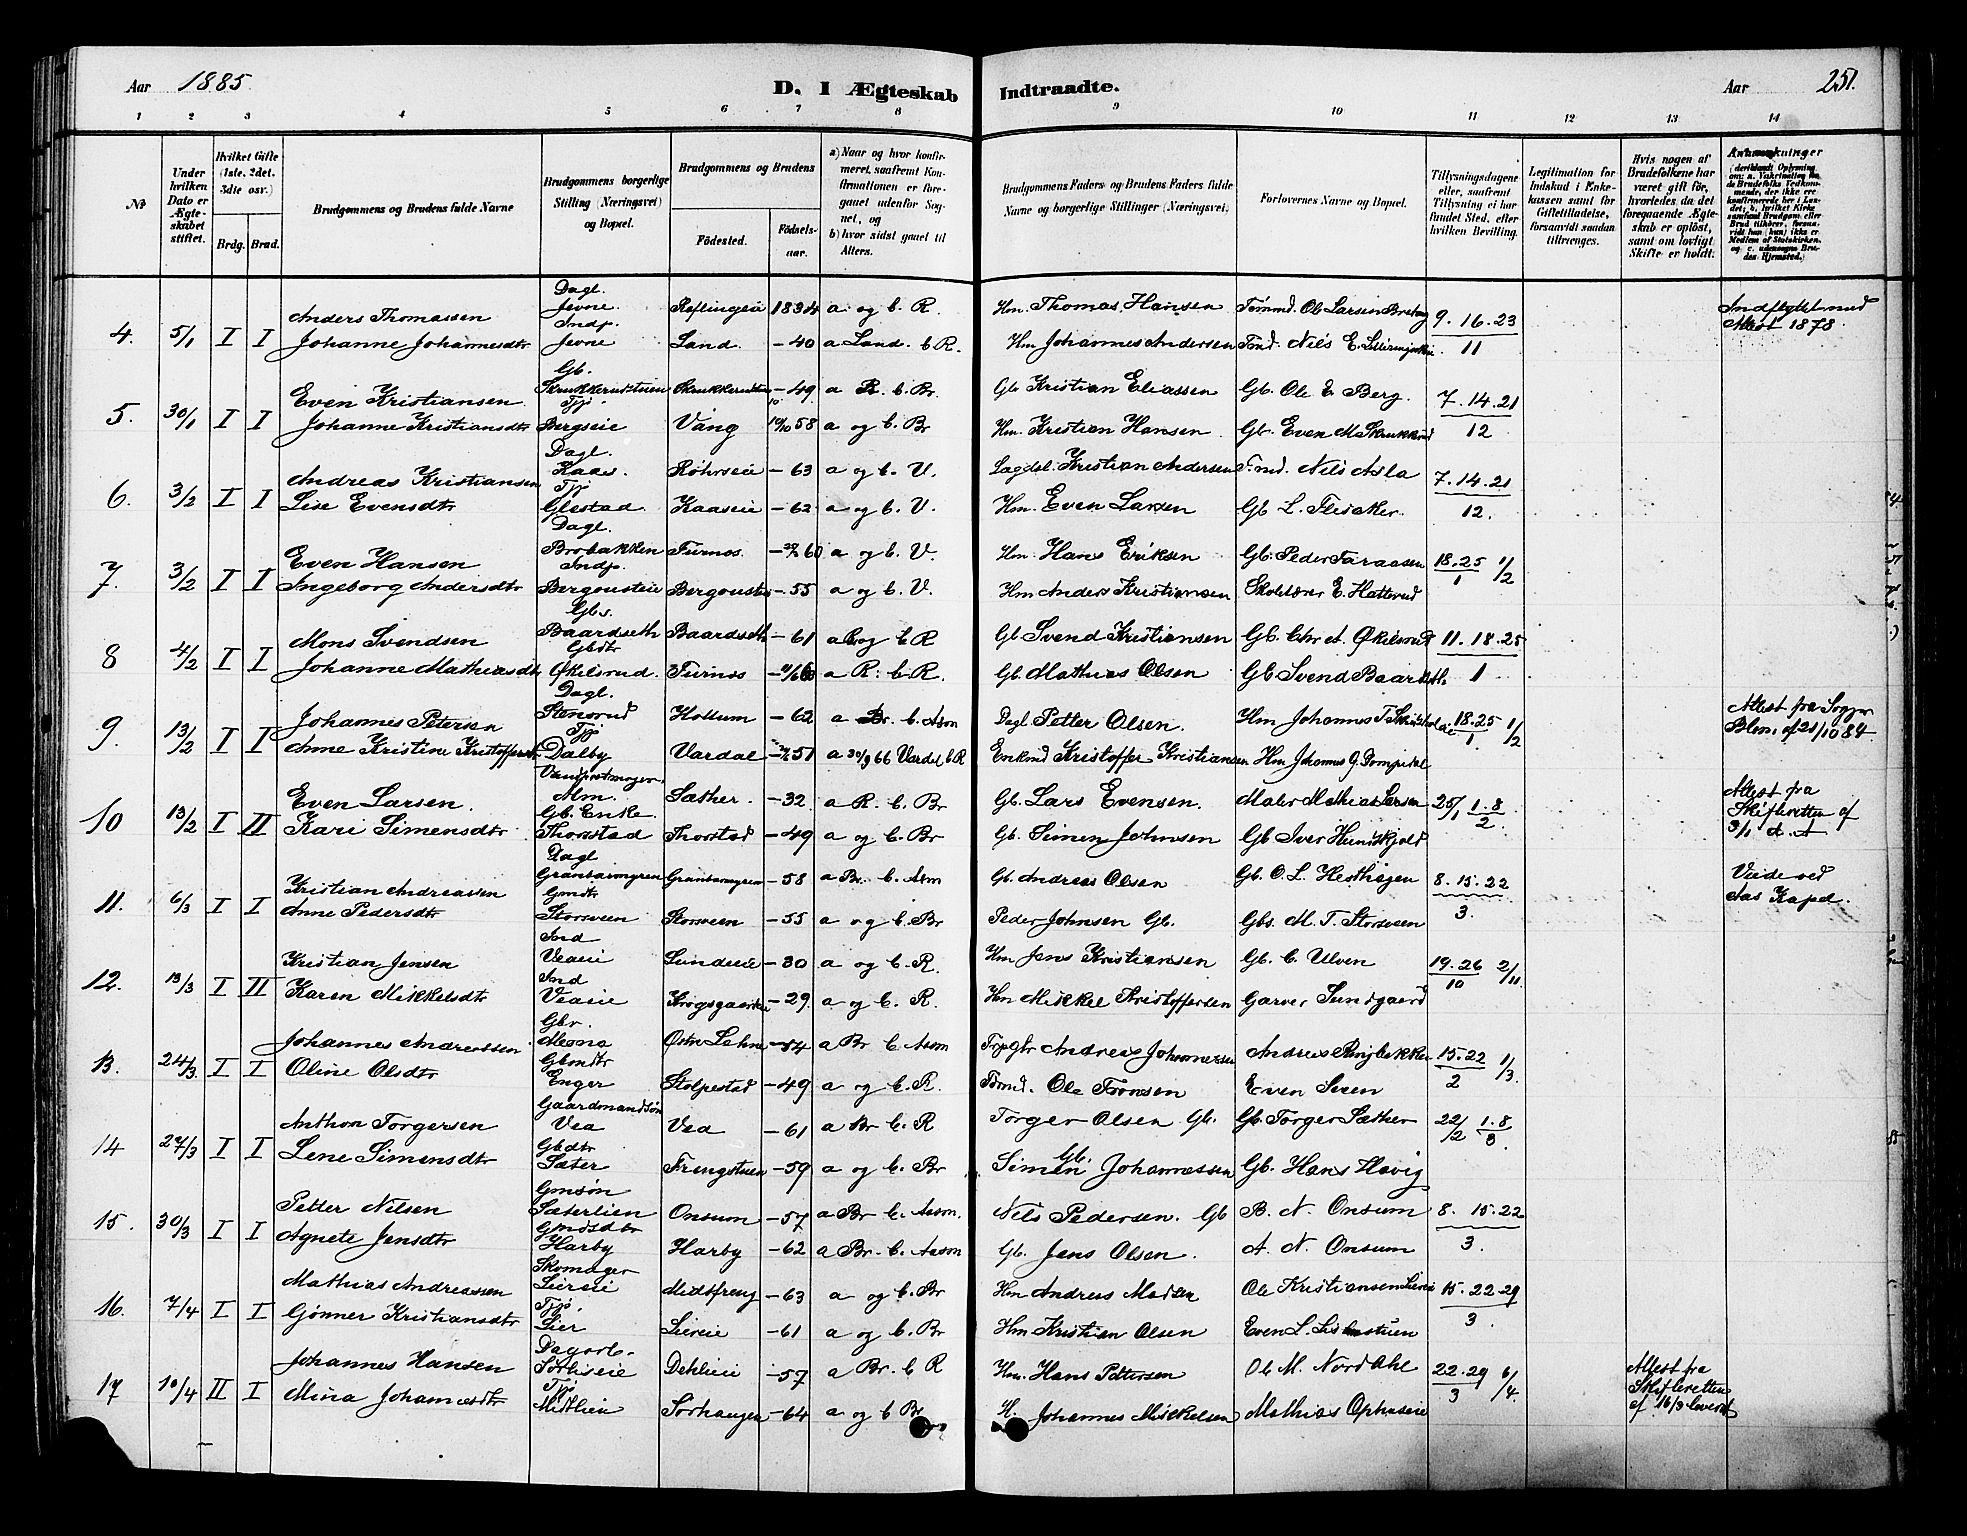 Aar 1885.
D. I Ægteskab Indtraadte.
Aar 251.
1 2 3 4 5 6 7 8 9 10 11 12 13 14
No
Under hvilken Dato er Ægteskabet stiftet.
Hvilket Gifte (1ste, 2det, 3die osv.)
Brdg. Brud.
Brudgommens og Brudens fulde Navne
Brudgommens borgerlige Stilling (Næringsvei) og Bopæl.
Brudgommens og Brudens
Födested. Födselsaar.
a) Naar og hvor konfirmeret, saafremt Konfirmationen er foregaaet udenfor Sognet, og
b) hvor sidst gaaet til Alters.
Brudgommens Faders og Brudens Faders fulde Navne og borgerlige Stillinger (Næringsvei)
Forlovernes Navne og Bopæl.
Tillysningsdagene eller, saafremt Tillysning ei har fundet Sted, efter hvilken Bevilling.
Legitimation for Indskud i Enkekassen samt for Giftetilladelse, forsaavidt saadan tiltrænges.
Hvis nogen af Brudefolkene har været gift för, hvorledes da det foregaaende Ægteskab er oplöst, samt om lovligt Skifte er holdt.
Anmærkninger
4. 5/1 I I Anders Thomassen Dagl. Jevne. Reflingeie 1834 a og b. R. Hm. Thomas Hansen Tømmd. Ole Larsen 9. 16. 23 Indflyttet med Attest 1878.
Johanne Johannesdtr Indp. Jevne Land. -40 a Land. b R. Hm Johannes Andersen Tmd. Nils E. 11
5. 30/1 I I Even Kristiansen Gb. Skrukkerudstuen -49 a R. b. Br. Gb Kristian Eliassen Gb. Ole E. Berg. 7. 14. 21
Johanne Kristiansdtr Tjp. Bergseie Vang 19/10 58 a og b. Br Hm. Kristian Hansen Gb. Even M Skrukkrud 12
6. 3/2 I I Andreas Kristiansen Dagl. Kaas. Röhrseie -63 a og b. V. Kristian Andersen Tmd. Nils Asla 7. 14. 21
Lise Evensdtr Tjp Glestad Kaaseie -62 a og b. V. Hm. Even Larsen Gb L. Flisaker. 12.
7. 3/2 I I Even Hansen Dagl. Brobakken Furnes. 60 a og b. V. Hm. Hans Eriksen Gb. Peder Faraasen 18. 25 1/2
Ingeborg Andersdtr Indp. Bergousteie -55 a og b. V. Hm Anders Kristiansen Skolelærer E. Hatterud 1
8 4/2 I I Mons Svendsen Gbs. Baardseth Baardseth -61 a og b R Gb Svend Kristiansen Gb. Chr A. Økelsrud 11. 18. 25
Johanne Mathiasdtr Gbdtr Økelsrud. Furnes a R. b. R. Gb. Mathias Olsen Gb Svend Baardseth. 1
9. 13/2 I I Johannes Petersen Dagl. Stensrud Hollum -62 a Br. b. Aasm Dagl Petter Olsen. Hm Johannes T. 18. 25 1/2 Attest fra Sogpr Blom. af 21/10 84
Anne Kristine Kristoffersdtr Tjp Dalby Vardal 51 a 30/9 66 Vardal b R Enkmd Kristoffer Kristiansen Hm Johannes G. 1.
10 13/2 I II Even Larsen. Vandpostmager. Alm. Sæther. -32 a R. b. Br Gb. Lars Evensen. Maler Mathias Larsen 25/1 1. 8 Attest fra Skifteretten af 3/1 d. A
Kari Simensdtr Gb. Enke Thorstad Thorstad -49 a og b. Br Gb. Simen Johnsen Gb Iver Hundskjold 2
11. 6/3 I I Kristian Andreassen Dagl -58 a Br. b. Aasm Gb. Andreas Olsen Gb. O. L. 8. 15. 22 Viede ved Aas Kapel.
Anne Pedersdtr Gmdtr Storsveen Storsveen -55 a og b. Br Peder Johnsen Gb. Gbs. M. T. Storsveen 3.
12. 13/3 I II Kristian Jensen Ind Veaeie Sundeeie -30 a og b. R. Hm Jens Kristiansen Gb. C. Ulven 19. 26 2/11
Karen Mikkelsdtr Ind Veaeie -29 a og b. R. Hm Mikkel Kristoffersen Garver Sundgaard 10
13. 24/3 I I Johannes Andreassen Gbr. Østre Lehne -54 a Br b. Aasm Andreas Johannesen Andreas 15. 22 1/3
Oline Olsdtr Gbmdtr Enger Stolpestad -49 a og b. R. Tømd. Ole Tronsen Even Sveen 2
14 27/3 I I Anthon Torgersen Gaardmandssön Vea Vea -61 a Br b. R Torger Olsen Gb. Gb. Torger Sæther 22/2 1. 8
Lene Simensdtr Gbdtr Sæter Frengstuen -59 a og b. Br Gb. Simen Johannessen Gb. Hans Havig 3
15. 30/3 I I Petter Nilsen Gmsön Sæterlien Onsum -57 a Br b. Aasm. Nels Pedersen. Gb B. N. Onsum 8. 15. 22
Agnete Jensdtr Gmdsdtr Harby Harby -62 a Br. b. Aasm Gb. Jens Olsen. A. N. Onsum 3.
16. 7/4 I I Mathias Andreassen Skomager Liereie Midtfreng -63 a og b. Br Hm Andreas Madsen Ole Kristiansen Liereie 15. 22. 29
Gönner Kristiansdtr Tjp. Lier Liereie -61 a og b. Br Hm Kristian Olsen Even L. 3.
17 10/4 II I Johannes Hansen Dagarb. Sørliseie Dehlieie -57 a Br. b R Hm. Hans Pettersen Ole M. Nordahl 22. 29 6/4 Attest fra Skifteretten af 16/3 leveret
Mina Johannesdtr Tjp. Midtlien Sørhaugen -64 a og b Br H. Johannes Mikkelsen Mathias Ophuseie 3